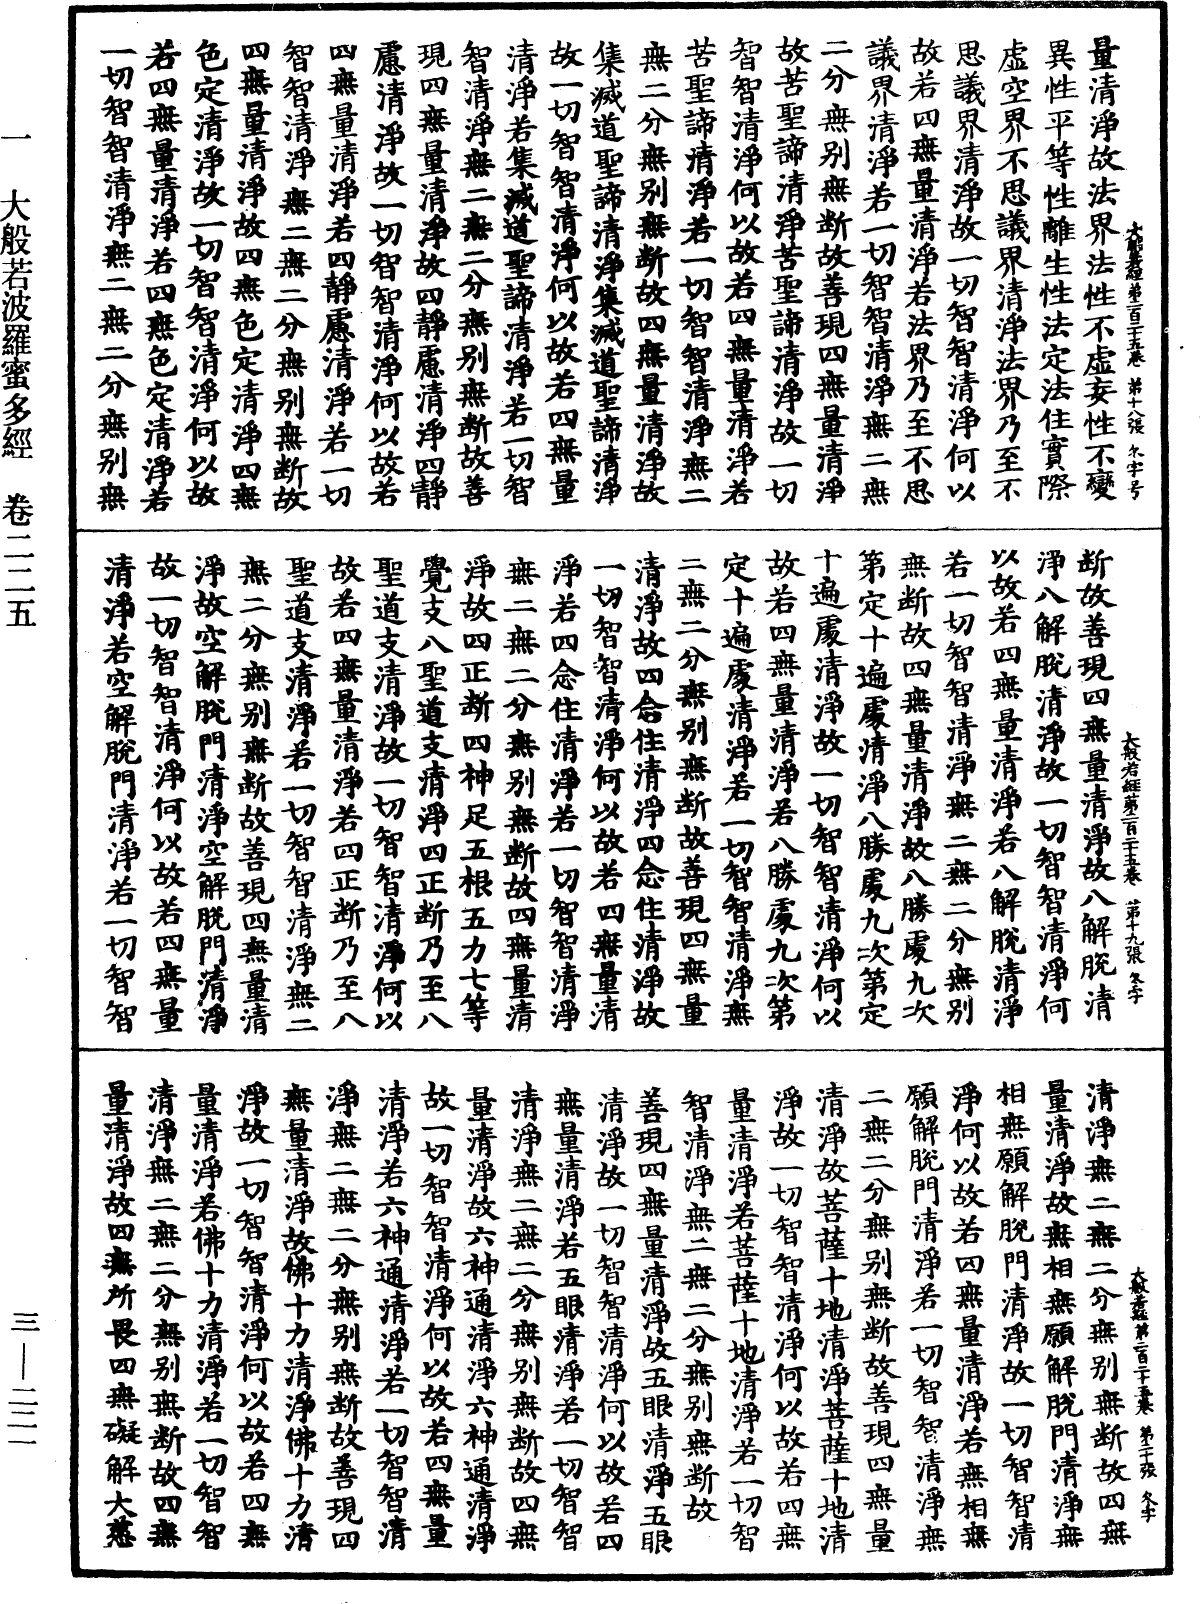 量清淨故法界法性不虛妄性不變
異性平等性離生性法定法住實際
虛空界不思議界清淨法界乃至不
思議界清淨故一切智智清淨何以
故若四無量清淨若法界乃至不思
議界清淨若一切智智清淨無二無
二分無別無斷故善現四無量清淨
故苦聖諦清淨苦聖諦清淨故一切
智智清淨何以故若四無量清淨若
苦聖諦清淨若一切智智清淨無二
無二分無別無斷故四無量清淨故
集滅道聖諦清淨集滅道聖諦清淨
故一切智智清淨何以故若四無量
清淨若集滅道聖諦清淨若一切智
智清淨無二無二分無別無斷故善
現四無量清淨故四靜慮清淨四靜
慮清淨故一切智智清淨何以故若
四無量清淨若四靜慮清淨若一切
智智清淨無二無二分無別無斷故
四無量清淨故四無色定清淨四無
色定清淨故一切智智清淨何以故
若四無量清淨若四無色定清淨若
一切智智清淨無二無二分無別無
大般若經第二百二十五卷 第十八張 冬字号
斷故善現四無量清淨故八解脫清
淨八解脫清淨故一切智智清淨何
以故若四無量清淨若八解脫清淨
若一切智智清淨無二無二分無別
無斷故四無量清淨故八勝處九次
第定十遍處清淨八勝處九次第定
十遍處清淨故一切智智清淨何以
故若四無量清淨若八勝處九次第
定十遍處清淨若一切智智清淨無
二無二分無別無斷故善現四無量
清淨故四念住清淨四念住清淨故
一切智智清淨何以故若四無量清
淨若四念住清淨若一切智智清淨
無二無二分無別無斷故四無量清
淨故四正斷四神足五根五力七等
覺支八聖道支清淨四正斷乃至八
聖道支清淨故一切智智清淨何以
故若四無量清淨若四正斷乃至八
聖道支清淨若一切智智清淨無二
無二分無別無斷故善現四無量清
淨故空解脫門清淨空解脫門清淨
故一切智智清淨何以故若四無量
清淨若空解脫門清淨若一切智智
大般若經第二百二十五卷 第十九張 冬字
清淨無二無二分無別無斷故四無
量清淨故無相無願解脫門清淨無
相無願解脫門清淨故一切智智清
淨何以故若四無量清淨若無相無
願解脫門清淨若一切智智清淨無
二無二分無別無斷故善現四無量
清淨故菩薩十地清淨菩薩十地清
淨故一切智智清淨何以故若四無
量清淨若菩薩十地清淨若一切智
智清淨無二無二分無別無斷故
善現四無量清淨故五眼清淨五眼
清淨故一切智智清淨何以故若四
無量清淨若五眼清淨若一切智智
清淨無二無二分無別無斷故四無
量清淨故六神通清淨六神通清淨
故一切智智清淨何以故若四無量
清淨若六神通清淨若一切智智清
淨無二無二分無別無斷故善現四
無量清淨故佛十力清淨佛十力清
淨故一切智智清淨何以故若四無
量清淨若佛十力清淨若一切智智
清淨無二無二分無別無斷故四無
量清淨故四無所畏四無礙解大慈
大般若經第二百二十五卷 第二十張 冬字
一 大般若波羅蜜多經 卷二二五 三—二二一